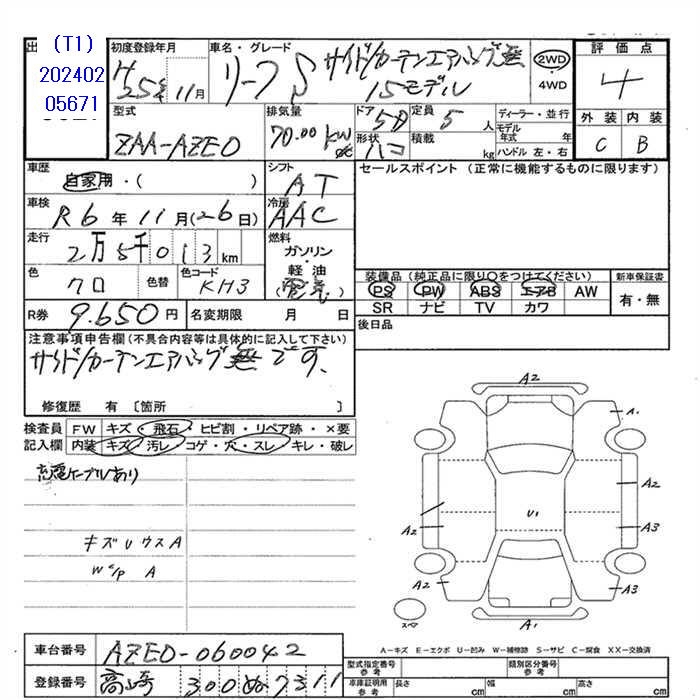 (T1)
202402
05671
出
初度登録年月
H25年11月
車名・グレード
リーフS サイド/カーテンエアバッグ無
15モデル
2WD
4WD
評価点
4
外装 内装
C B
型式
ZAA-AZE0
排気量
70.00 KW
ドア 5D
形状 ハコ
定員 5人
積載 kg
ディーラー・並行
モデル年式 年
ハンドル 左・右
車歴
自家用・( )
シフト
AT
セールスポイント (正常に機能するものに限ります)
車検
R6年11月(26日)
冷房
AAC
走行
2万5千013km
燃料
ガソリン
・
軽・油
(電気)
色
クロ
色替
色コード
KH3
装備品(純正品に限り○をつけてください)
PS PW ABS エアB AW
SR ナビ TV カワ
新車保証書
有・無
R券 9.650円
名変期限 月 日
後日品
注意事項申告欄(不具合内容等は具体的に記入して下さい)
サイド/カーテンエアバッグ無です、
修復歴 有〔箇所 〕
検査員 FW キズ・飛石・ヒビ割・リペア跡・×要
記入欄 内装 キズ・汚レ・コゲ・穴・スレ・キレ・破レ
充電ケーブルあり
キズUウスA
W%P A
A2
A1
A2
U1
A2
A3
A2
A3
A1
スペア
A−キズ E−エクボ U−凹み W−補修跡 S−サビ C−腐食 XX−交換済
車台番号 AZE0-060042
登録番号 高崎 300 ぬ 7311
型式指定番号
参考
類別区分番号
参考
車庫証明用
参考
長さ cm 幅 cm 高さ cm